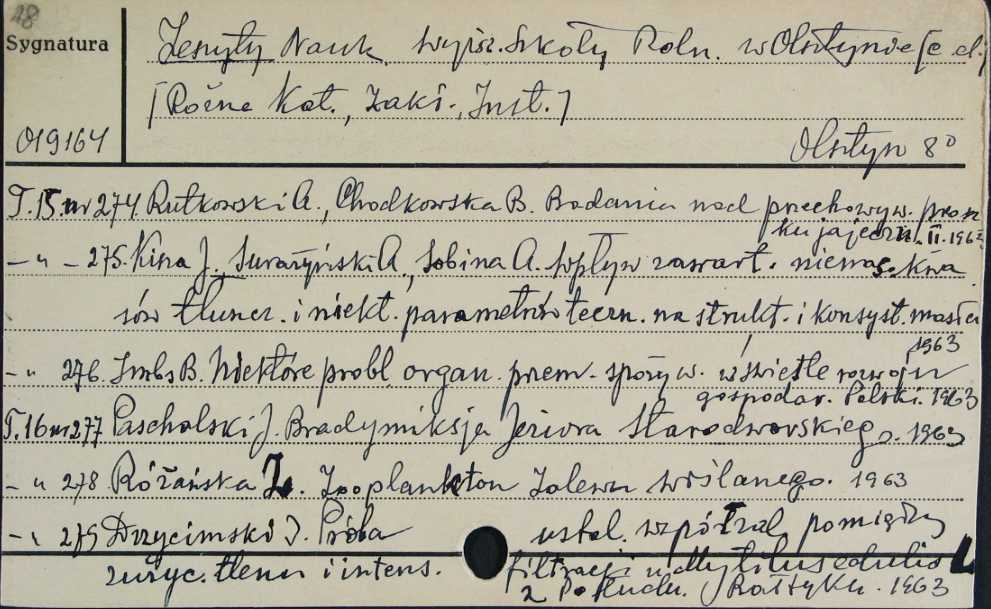 28
Sygnatura
Zeszyty Nauk. Wyższ. Szkoły Roln. w Olsztynie [c.d.]
[Różne Kat., Zakł., Inst.]
O19164
Olsztyn 8°
T.15.nr 274. Rutkowski A., Chodkowska B. Badania nad przechowyw. prosz
ku jajeczn. II. 1963
-"- 275. Kisza J., Surażyński A., Sobina A. Wpływ zawart. nienas. kwa
sów tłuszcz. i niekt. parametrów techn. na strukt. i konsyst. masła
1963
-" 276. Imbs B. Niektóre probl. organ. przem. spożyw. w świetle rozwoju
gospodar. Polski. 1963
T.16 nr 277 Paschalski J. Bradymiksja Jeziora Starodworskiego. 1963
-" 278 Różańska Z. Zooplankton Zalewu Wiślanego. 1963
-" 279 Drzycimski I. Próba ustal. współzal. pomiędzy
zużyc. tlenu i intens. filtracji u Mytilus edulis L
z Połudn. Bałtyku. 1963